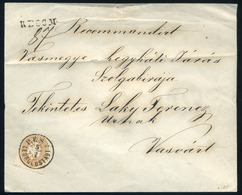 RECOM
87 Recommandirt
Vasmegye - hegyháti Járás
Szolgabirája
Tekintetes Laky Ferencz
Urnak
Vasvárt